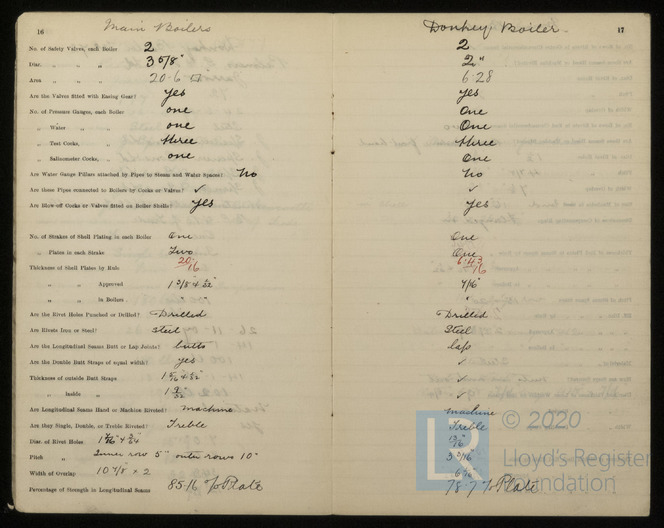 16 Main Boilers
Donkey Boiler 17
No. of Safety Valves, each Boiler 2 2
Diar. „ „ „ 3 5/8" 2"
Area „ „ „ 20.6 □" 6.28
Are the Valves fitted with Easing Gear? Yes Yes
No. of Pressure Gauges, each Boiler one One
„ Water „ „ one One
„ Test Cocks, „ three three
„ Salinometer Cocks, „ one One
Are Water Gauge Pillars attached by Pipes to Steam and Water Spaces? No No
Are these Pipes connected to Boilers by Cocks or Valves? ✓ ✓
Are Blow-off Cocks or Valves fitted on Boiler Shells? Yes Yes
No. of Strakes of Shell Plating in each Boiler One One
„ Plates in each Strake Two One
Thickness of Shell Plates by Rule 20/16 6.43/16
„ „ Approved 1 3/8 & 1/32" 7/16"
„ „ in Boilers " " "
Are the Rivet Holes Punched or Drilled? Drilled Drilled
Are Rivets Iron or Steel? Steel Steel
Are the Longitudinal Seams Butt or Lap Joints? butts laps
Are the Double Butt Straps of equal width? yes ✓
Thickness of outside Butt Straps ✓
„ inside „ 1 9/32" ✓
Are Longitudinal Seams Hand or Machine Riveted? machine machine
Are they Single, Double, or Treble Riveted? Treble Treble
Diar. of Rivet Holes 13/16"
Pitch „ Inner row 5" outer rows 10" 3 3/16"
Width of Overlap 10 7/8 × 2
Percentage of Strength in Longitudinal Seams 85.16 % Plate 78.7 % Plate
© 2020
LR Lloyd's Register
Foundation